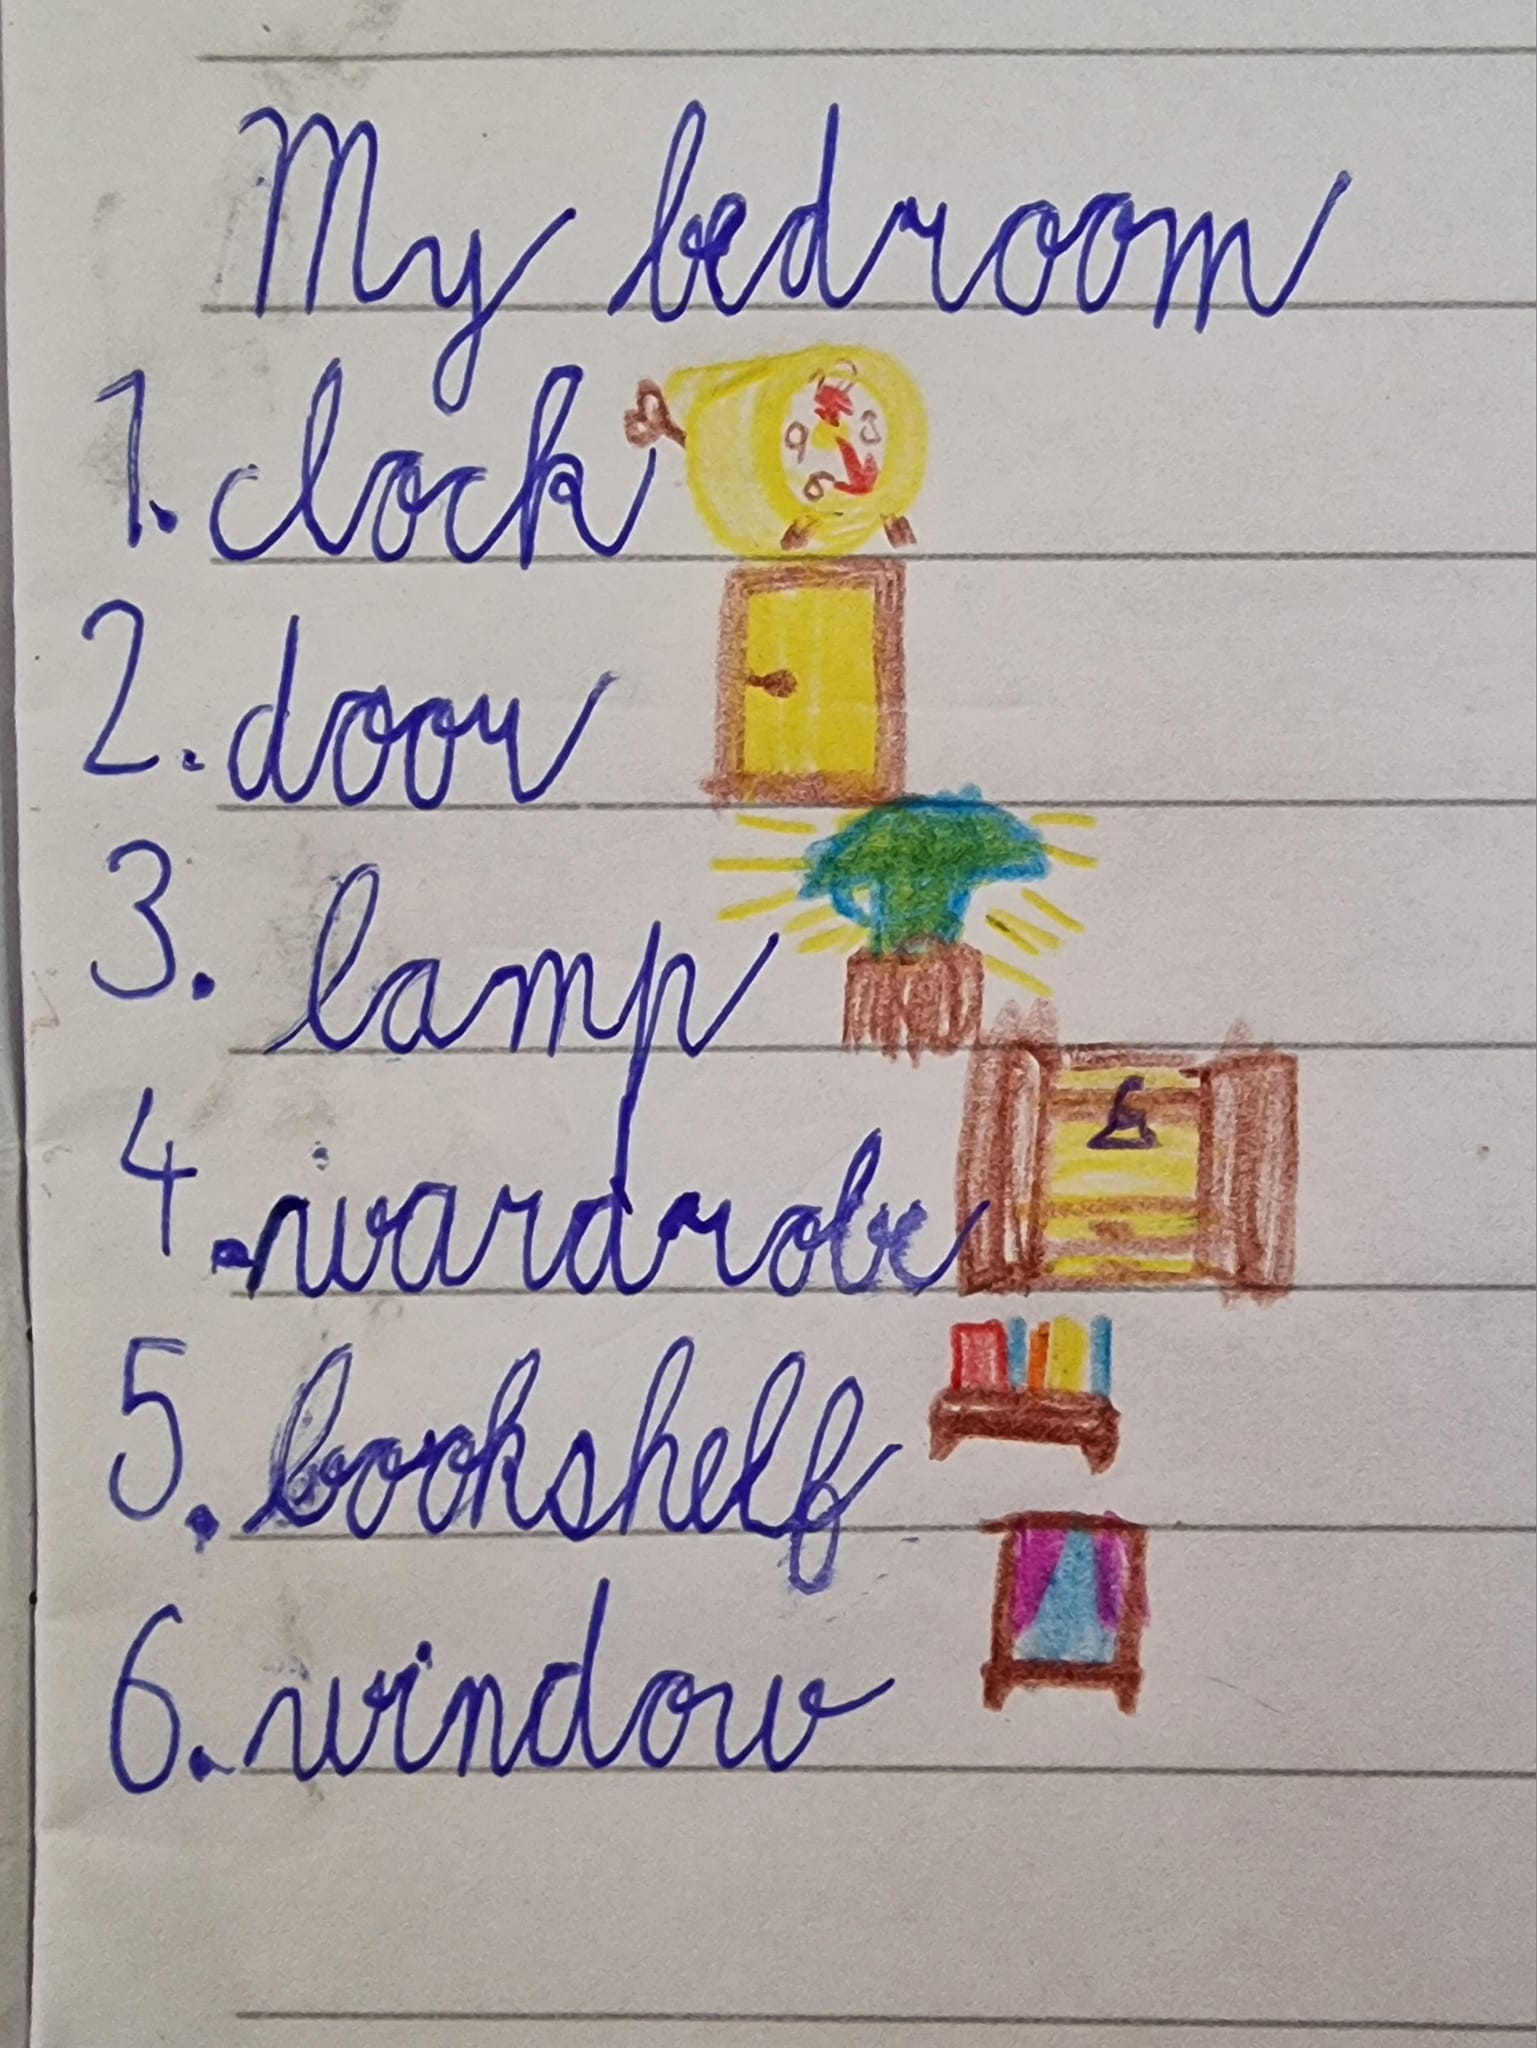 My bedroom
1. clock
2. door
3. lamp
4. wardrobe
5. bookshelf
6. window